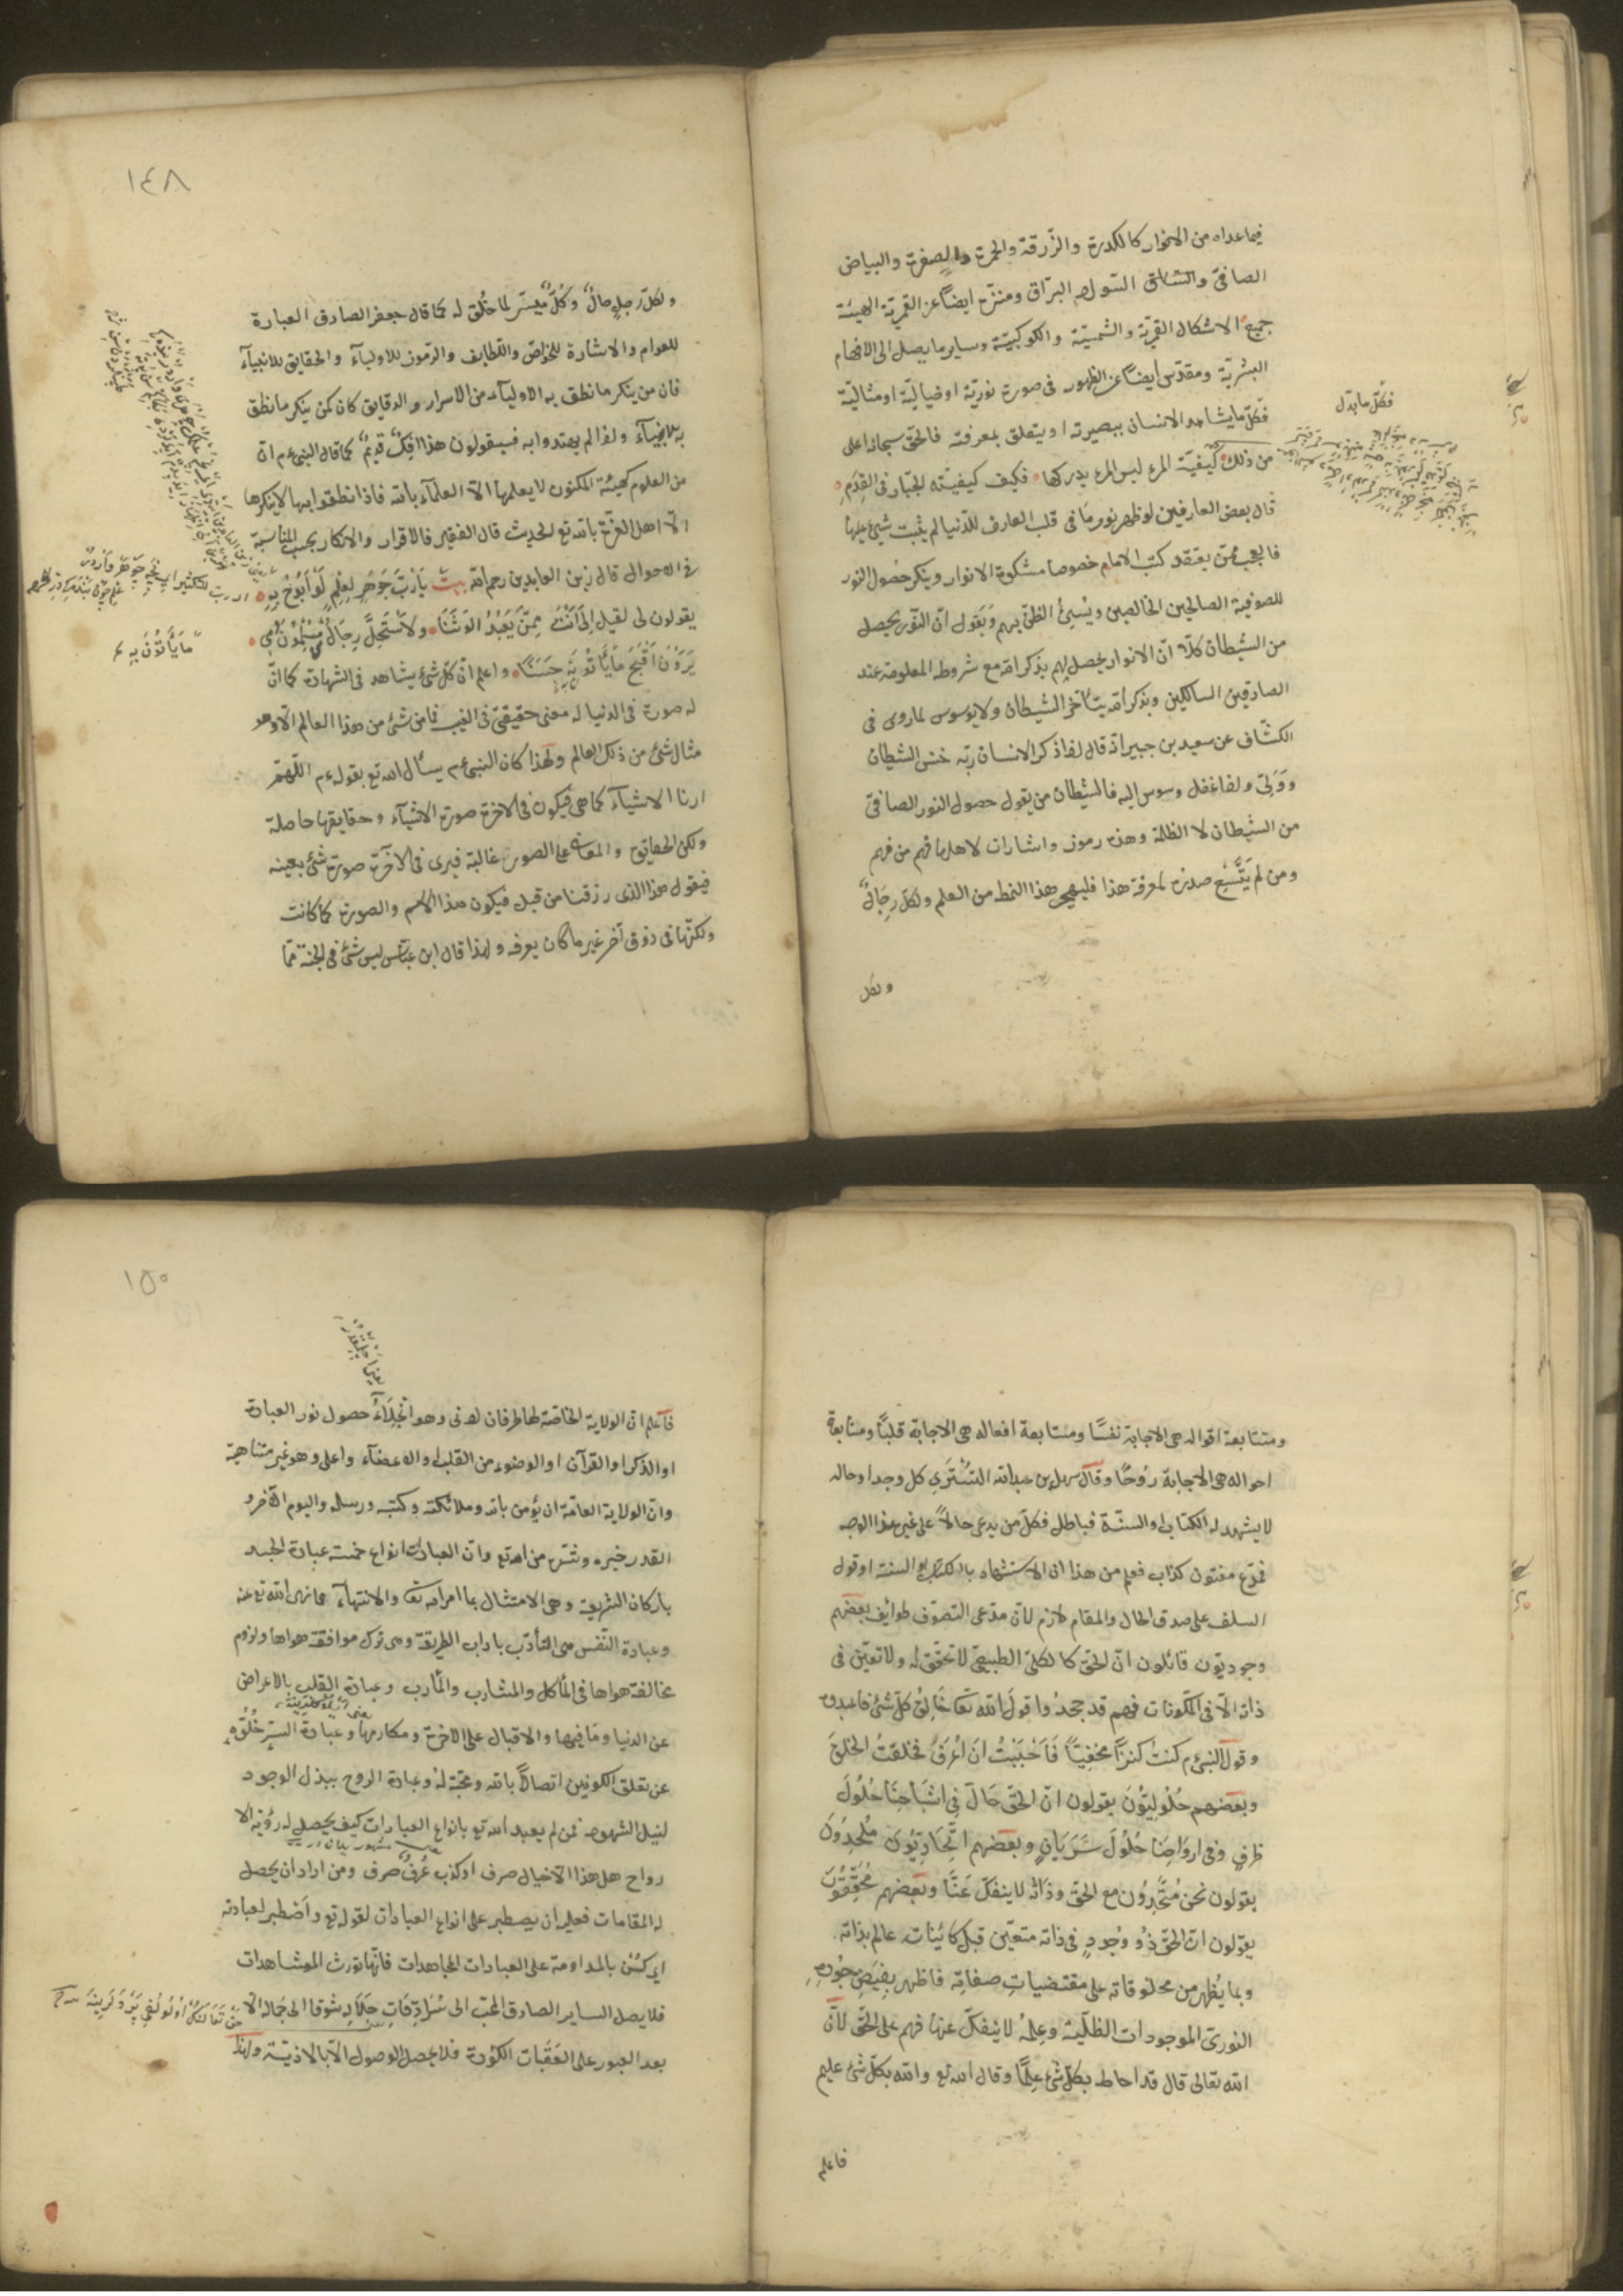 فيما عداه من الانوار كالكدرة والزّرقة والحمرة والصفرة والبياض
الصافى والشفاق السواد البرّاق ومنزّه ايضاً عن القمريّة الهيئة
جميع الاشكال القمريّة والشمسيّة والكوكبيّة وساير ما يصل الى الافهام
البشريّة ومقدّس ايضاً عن الظهور فى صورة نوريّة او خياليّة او مثاليّة
فكلّ ما يشاهد الانسان ببصيرته او يتعلق بمعرفته فالحقّ سبحانه اعلى
من ذلك كيفيّة المرء ليس المرء يدركها فكيف كيفيّته الجبّار فى القِدَمِ
قال بعض العارفين لو ظهر نور ما فى قلب العارف للدّنيا لم يثبت شيئ عليها
فالعجب ممّن يعتقد كتب الامام خصوصا مشكوة الانوار وينكر حصول النور
للصوفية الصالحين الخالصين ويُسِيئُ الظنّ بهم وَيَقول انّ النّور يحصل
من الشيطان كلّا انّ الانوار يحصل لهم بذكر الله مع شروطه المعلومة عند
الصادقين السالكين وبذكر الله يتأخّر الشيطان ولا يوسوس لما روى فى
الكشّاف عن سعيد بن جبير انّه قال اذا ذكر الانسان ربّه خنس الشيطان
وَوَلّى واذا غفل وسوس اليه فالشيطان من يقول حصول النور الصافى
من الشيطان لا الظلمة وهذه رموز واشارات لاهلها فهم من فهم
ومن لم يَتَّسِعْ صدره لمعرفة هذا فليهجر هذا النمط من العلم ولكلّ رجالٌ
ولكل
فكلّ ما يدلّ
١٤٨
ولكلّ رجلٍ حالٌ وكُلٌّ مُيسّر لما خُلِق له كما قال جعفر الصادق العبارة
للعوام والاشارة للخواصّ واللّطايف والرّموز للاوليآء والحقايق للانبيآء
فان من ينكر ما نطق به الاوليآء من الاسرار والدقايق كان كمن ينكر ما نطق
به الانبيآء واذ لم يهتدوا به فسيقولون هذا اِفكٌ قديمٌ كما قال النبىّ عم انّ
من العلوم كهيئة المكنون لا يعلمها الّا العلمآء بالله فاذا نطقوا بها لا ينكرها
الّا اهل الغرّة بالله تع الحديث قال الفقير فالاقرار والانكار بحسب المناسبة
فى الاحوال قال زين العابدين رحمه الله بيت يَارُبَّ جَوْهَرِ عِلمٍ لَوْ اَبُوحُ بِهِ
يقولون لى لقيل لى اَنْتَ مِمَّنْ يَعْبُدُ الوَثَنَا ولاَسْتَحَلَّ رِجَالٌ مُسْلِمُونَ دَمِى
يَرَوْنَ اَقْبَحَ مَا يَأتُونَهِ حَسَنًا واعلم انّ كلّ شئ يشاهد فى الشهادة كما انّ
له صورة فى الدنيا له معنى حقيقىّ فى الغيب فما من شئ من هذا العالم الّا وهو
مثال شئ من ذلك العالم ولهذا كان النبى عم يسأل الله تع بقوله عم اللّهمّ
ارنا الاشيآء كما هى فيكون فى الاخرة صورة الاشيآء وحقايقها حاصلة
ولكن الحقايق والمعانى على الصور غالبة فيرى فى الاخرة صورة شئ بعينه
فيقول هذا الذى رزقنا من قبل فيكون هذا الاسم والصورة كما كانت
ولكنّها فى ذوق آخر غير ما كان يعرفه ولهذا قال ابن عبّاس ليس شئ فى الجنّة ممّا
مَا يَأتُونَ بِهِ
ومتتابعة اقواله هى الاجابة نفسًا ومتابعة افعاله هى الاجابة قلبًا ومتابعة
احواله هى الاجابة رُوحًا وقال سهل بن عبد الله التُسْتَرى كل وجد او حاله
لا يشهد له الكتاب او السنّة فباطل فكلّ من يدعى حالاً على غير هذا الوجه
فمدّع مفتون كذّاب فعلم من هذا ان الاستشهاد بالكتاب او السنة او قول
السلف على صدق الحال والمقام لازم لانّ مدّعى التصوّف طوايف بعضهم
وجوديّون قائلون انّ الحقّ كالكلىّ الطبيعىّ لا تحقّق له ولا تعيّن فى
ذاته الّا فى المكّونات فهم قد جحدُوا قولَ الله تعَا خَالِقُ كلّ شئ فاعبدوه
وقول النبى عم كنتُ كنزًا مخفيًّا فَاَحْبَبْتُ اَن اُعْرَفَ فخلقتُ الخلقَ
وبعضهم حُلُولِيّوُنَ يقولون انّ الحقّ حَالٌّ فِى اشبَاحِنَا حُلُولَ
ظرفٍ وفى اروَاحِنَا حُلُولَ سَرَيَانٍ وبعضهم اتّحَادِيّوُنَ مُلْحِدُونَ
يقولون نحنُ مُتّحِدُون مع الحقّ وذَاته لا ينفكّ عَنّا وبعضهم مُحَقِّقُونَ
يقولون انّ الحقّ ذُو وُجُودٍ فى ذاته متعيّن قبل كائينات عالم بذاته
وبما يُظهر من مخلوقاته على مقتضيات صفاتِه فاظهر بِفَيضِ جُودِهِ
النورىّ الموجودات الظلّية وعِلمُهُ لا ينفكّ عنها فهم على الحقّ لانّ
الله تعالى قال قد احاط بكلّ شئ عِلمًا وقال الله تع والله بكلّ شئ عليم
فاعلم
١٥٠
فاَعلم انّ الولاية الخاصّة لها طرفان ادنى وهو انجلآءُ حصول نور العبادة
او الذكر او القرآن او الوضوء من القلب او الاعضآء واعلى وهو غير متناهية
وانّ الولاية العامّة ان يؤمن بالله وملائكته وكتبه ورسله واليوم الآخر و
القدر خيره وشرّه من الله تع وانّ العبادات انواع خمسة عبادة الجسد
باركان الشريعة وهى الامتثال بما امر الله تعا والانتهآء عما نهى الله تع عنه
وعبادة النّفس هى التأدّب باداب الطريقة وهى ترك موافقة هواها ولزوم
مخالفة هواها فى المأكل والمشارب والمآرب وعبادة القلب بالاعراض
عن الدنيا ومَا فيها والاقبال على الاخرة ومكارمها وعبادة السرّ خُلُوّه
عن تعلق الكونين اتصالاً بالله ومحبّة لهُ وعبادة الروح ببذل الوجود
لنيل الشهود فمن لم يعبد الله تع بانواع العبادات كيف يحصل له رؤية الا
رواح هل هذا الّا خيال صرف او كذب عُرفىٌّ صرف ومن اراد ان يحصل
له المقامات فعليه ان يصطبر على انواع العبادات لقوله تع واَصْطبر لعبادته
اى كُنْ بالمداومة على العبادات المجاهدات فانّها تورث المشاهدات
فلا يصل الساير الصادق المحبّ الى سُرَادِقَاتِ جَلَالِهِ شوقا الى جَماله الّا
بعد العبور على العَقَبات الكؤدة فلا يحصل الوصول الّا بالاذيّة ولهذا